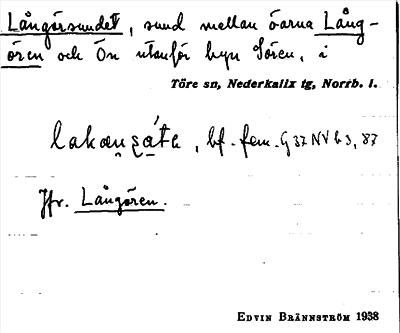 Långörsundet, sund mellan öarna Lång-
ören och Ön utanför byn Sören, i
Töre sn, Nederkalix tg, Norrb. l.
bf. fem. G 37 NV b 3, 87
Jfr. Långören.
EDVIN BRÄNNSTRÖM 1938